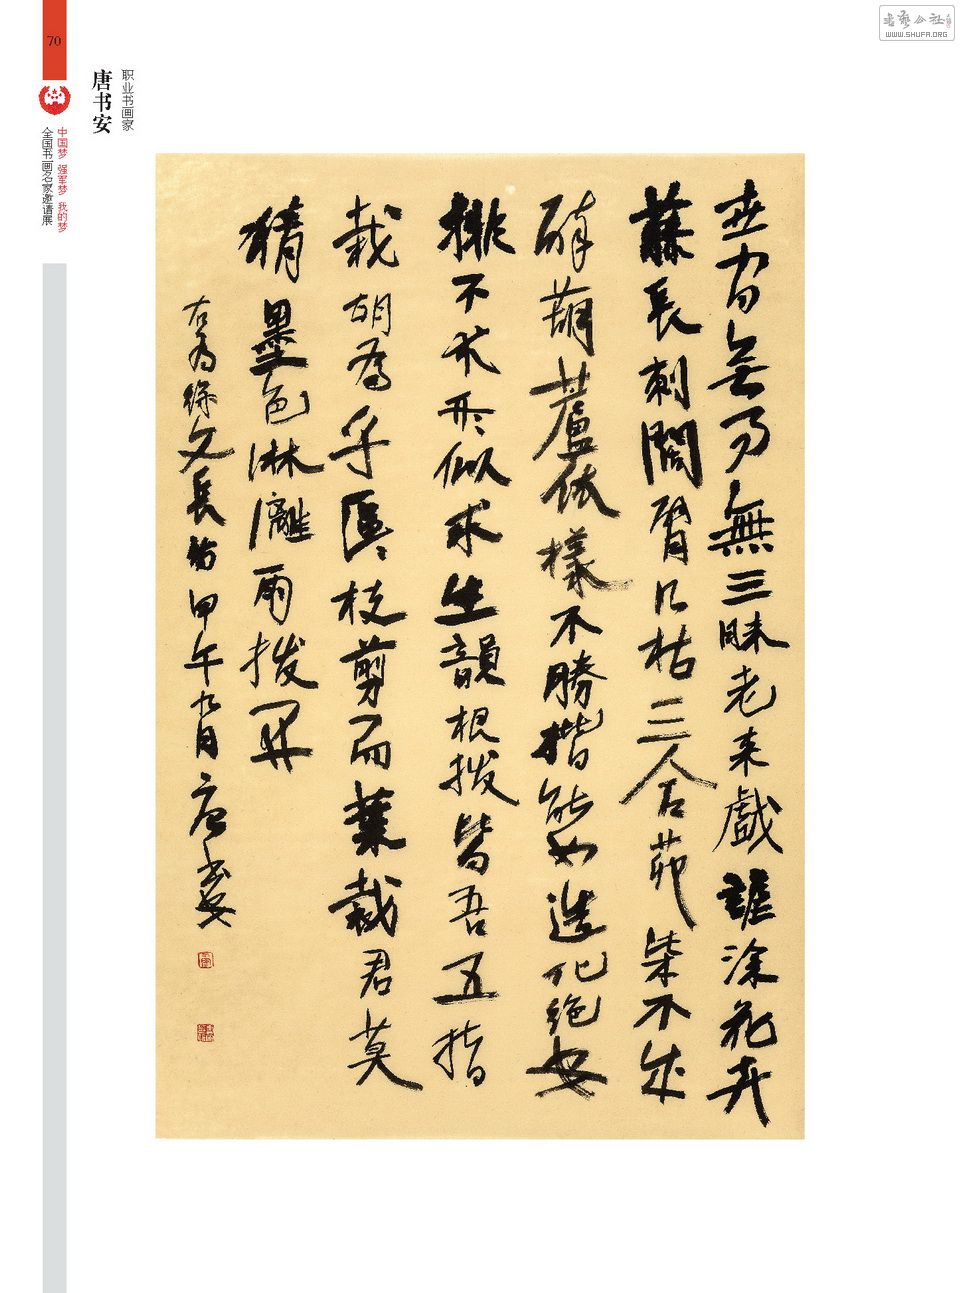 書藝公社
WWW.SHUFA.ORG
70
职业书画家
唐书安
中国梦 强军梦 我的梦
全国书画名家邀请展
世间无事無三昧老来戲謔涂花卉
藤長刺闊臂几枯三合茆柴不成
醉葫蘆依樣不勝揩能如造化絶安
排不求形似求生韻根拨皆吾五指
栽胡為乎區々枝剪而葉裁君莫
猜墨色淋漓雨拨開
右为徐文長句甲午九月唐书安